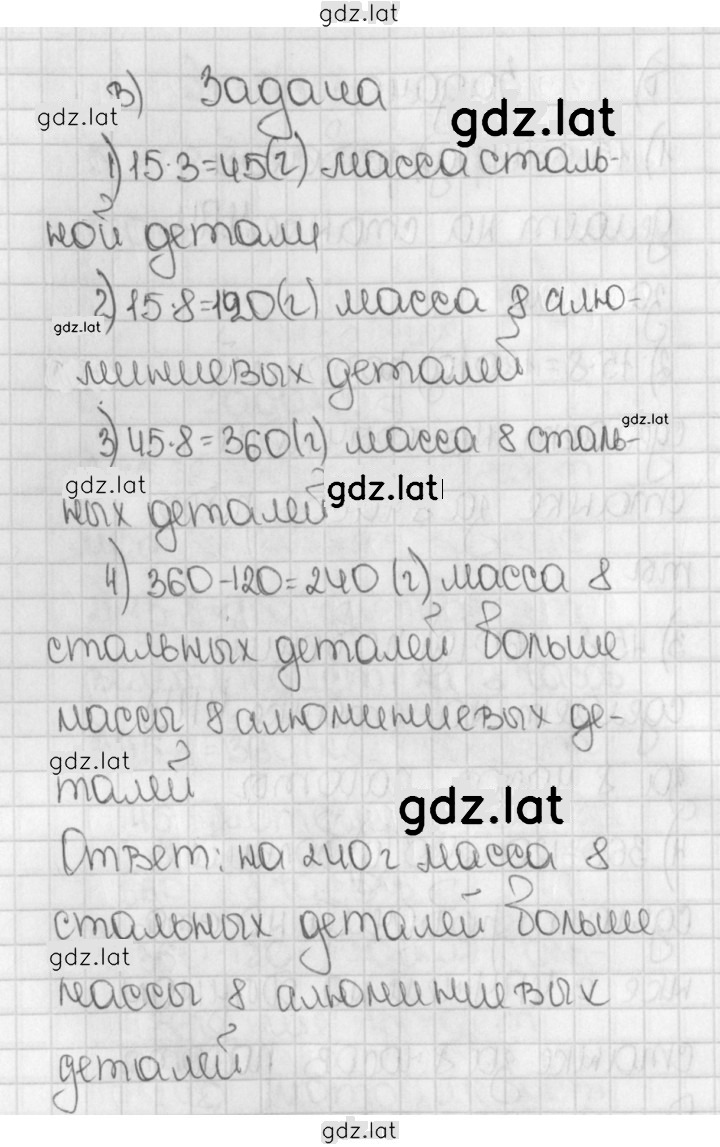 gdz.lat
в) Задача
gdz.lat
gdz.lat
1) 15·3=45(г) масса сталь-
ной детали
2) 15·8=120(г) масса 8 алю-
gdz.lat
миниевых деталей
3) 45·8=360(г) масса 8 сталь-
gdz.lat
gdz.lat
ных деталей
gdz.lat
4) 360-120=240 (г) масса 8
стальных деталей больше
массы 8 алюминиевых де-
gdz.lat
талей
gdz.lat
Ответ: на 240 г масса 8
стальных деталей больше
gdz.lat
массы 8 алюминиевых
деталей
gdz.lat